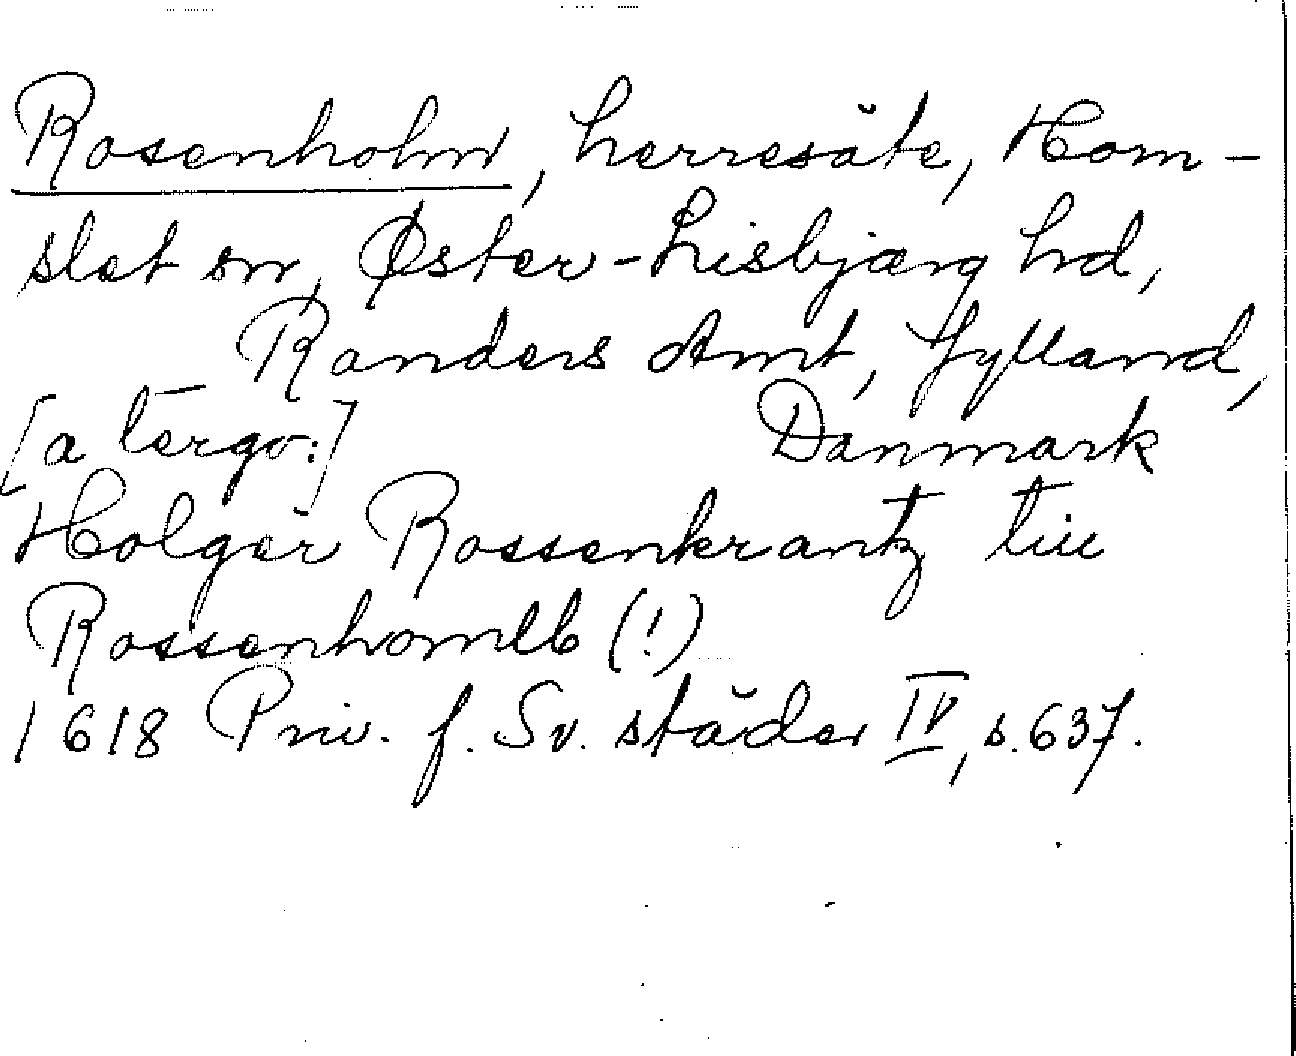 Rosenholm, herresäte, Horn-
slet sn, Øster-Lisbjærg hd,
Randers Amt, Jylland,
[a tergo:] Danmark
Holger Rossenkrantz till
Rossenhomlb (!)
1618 Priv. f. Sv. städer IV, s. 637.